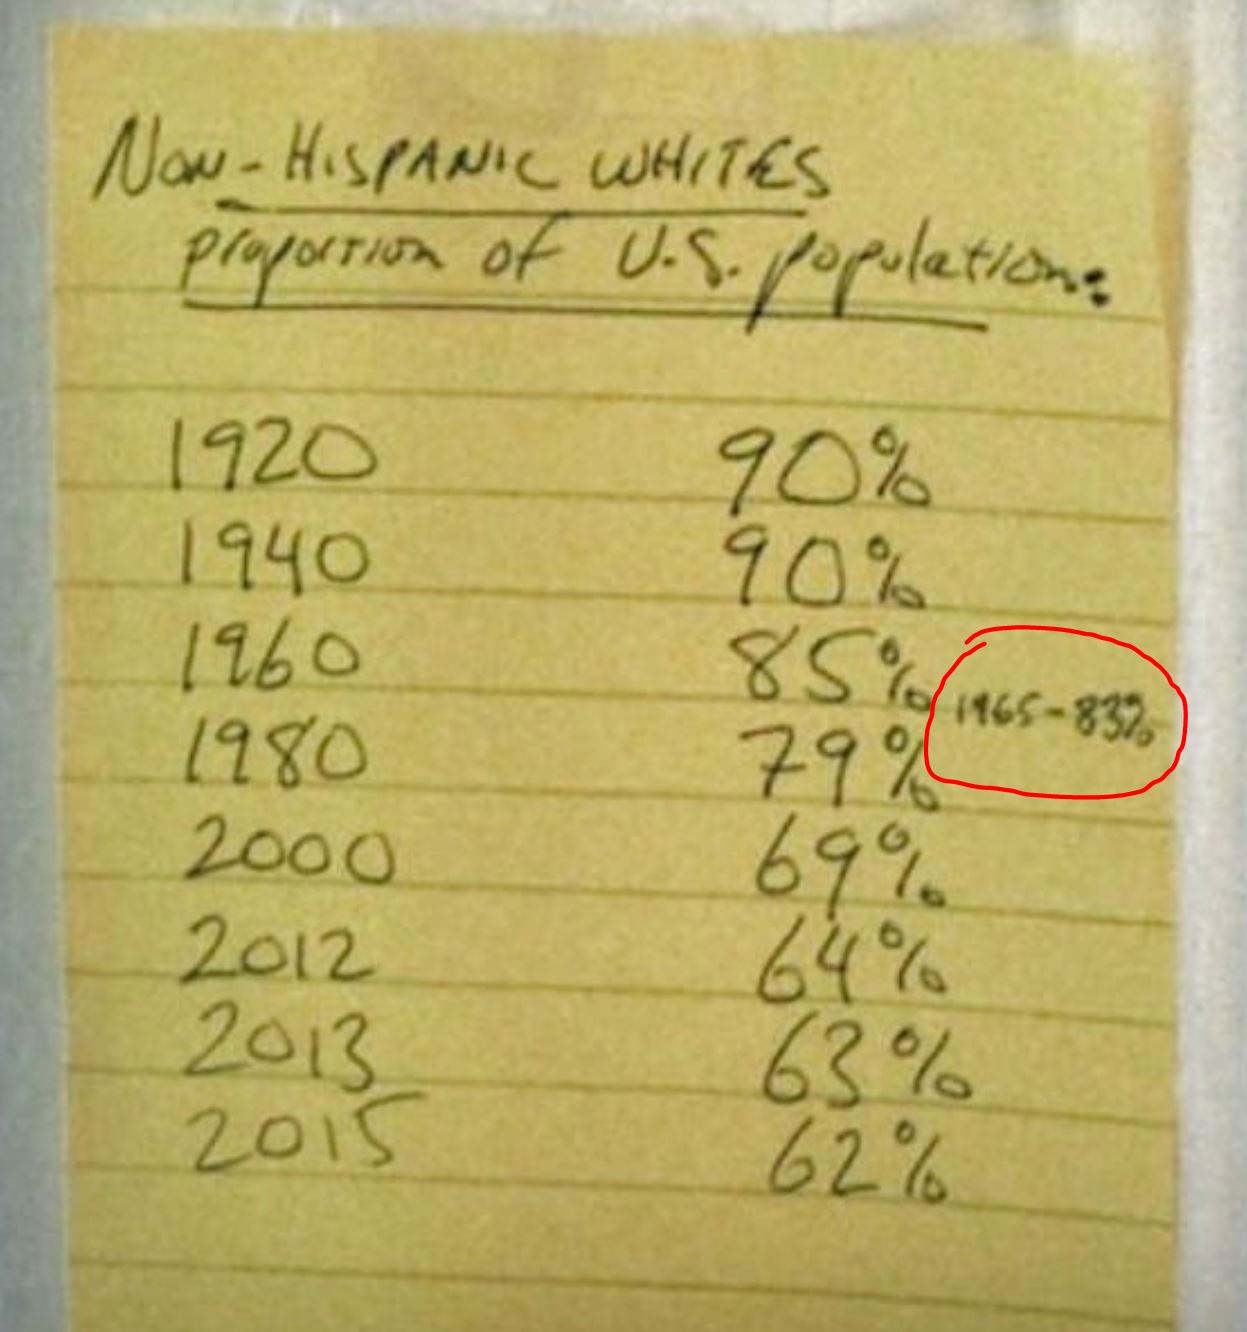 NON-HISPANIC WHITES
proportion of U.S. population:
1920 90%
1940 90%
1960 85%
1965-83%
1980 79%
2000 69%
2012 64%
2013 63%
2015 62%